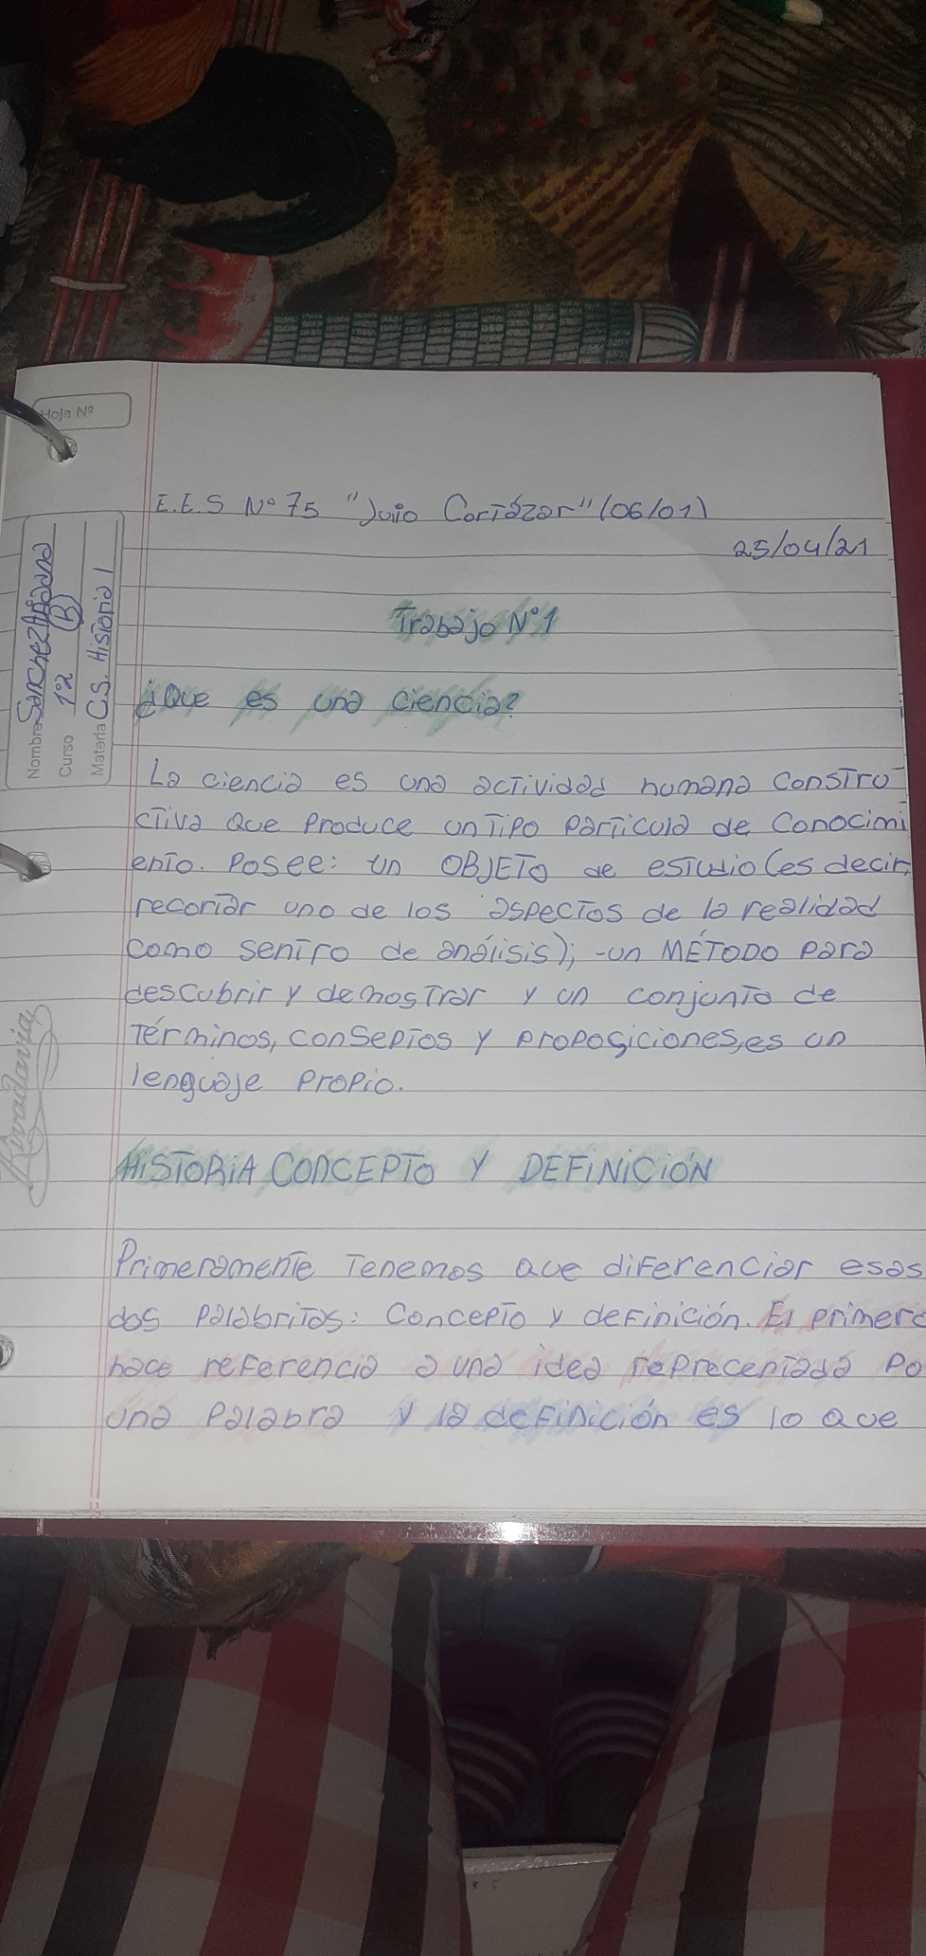 Hoja Nº
Nombre Sanchez Ariadna
Curso 1º2 (B)
Materia C.S. Historia 1
E.E.S Nº 75 "Julio Cortázar" (06/01)
25/04/21
Trabajo Nº1
¿Que es una ciencia?
La ciencia es una actividad humana constru-
ctiva que produce un tipo particula de conocimi
ento. Posee: un OBJETO de estudio (es decir,
recortar uno de los aspectos de la realidad
como sentro de análisis); -un MÉTODO para
descubrir y demostrar y un conjunto de
términos, conseptos y proposiciones, es un
lenguaje propio.
HISTORIA CONCEPTO Y DEFINICIÓN
Primeramente tenemos que diferenciar esas
dos palabritas: Concepto y definición. El primero
hace referencia a una idea reprecentada po
una palabra y la definición es lo que
Rivadavia